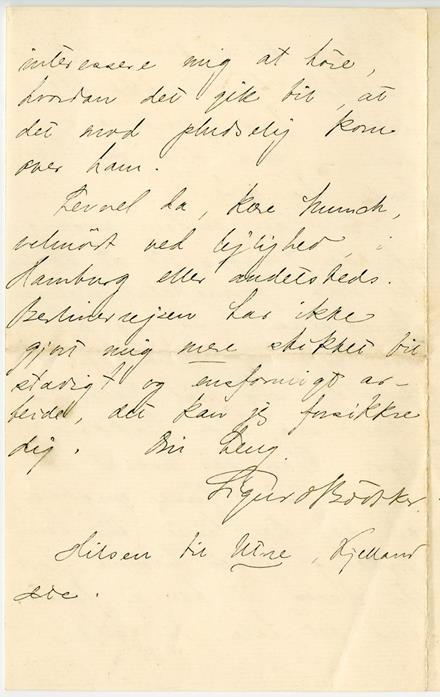 interessere mig at høre,
hvordan det gik til, at
det mod pludselig kom
over ham.
Levvel da, kære Munch,
velmødt ved lejlighed, i
Hamburg eller andetsteds.
Berlinerrejsen har ikke
gjort mig mere skikket til
stadigt og ensformigt ar-
beide, det kan jeg forsikre
dig. Din heng.
Sigurd Bødtker.
Hilsen til Utne, Kjelland
etc.